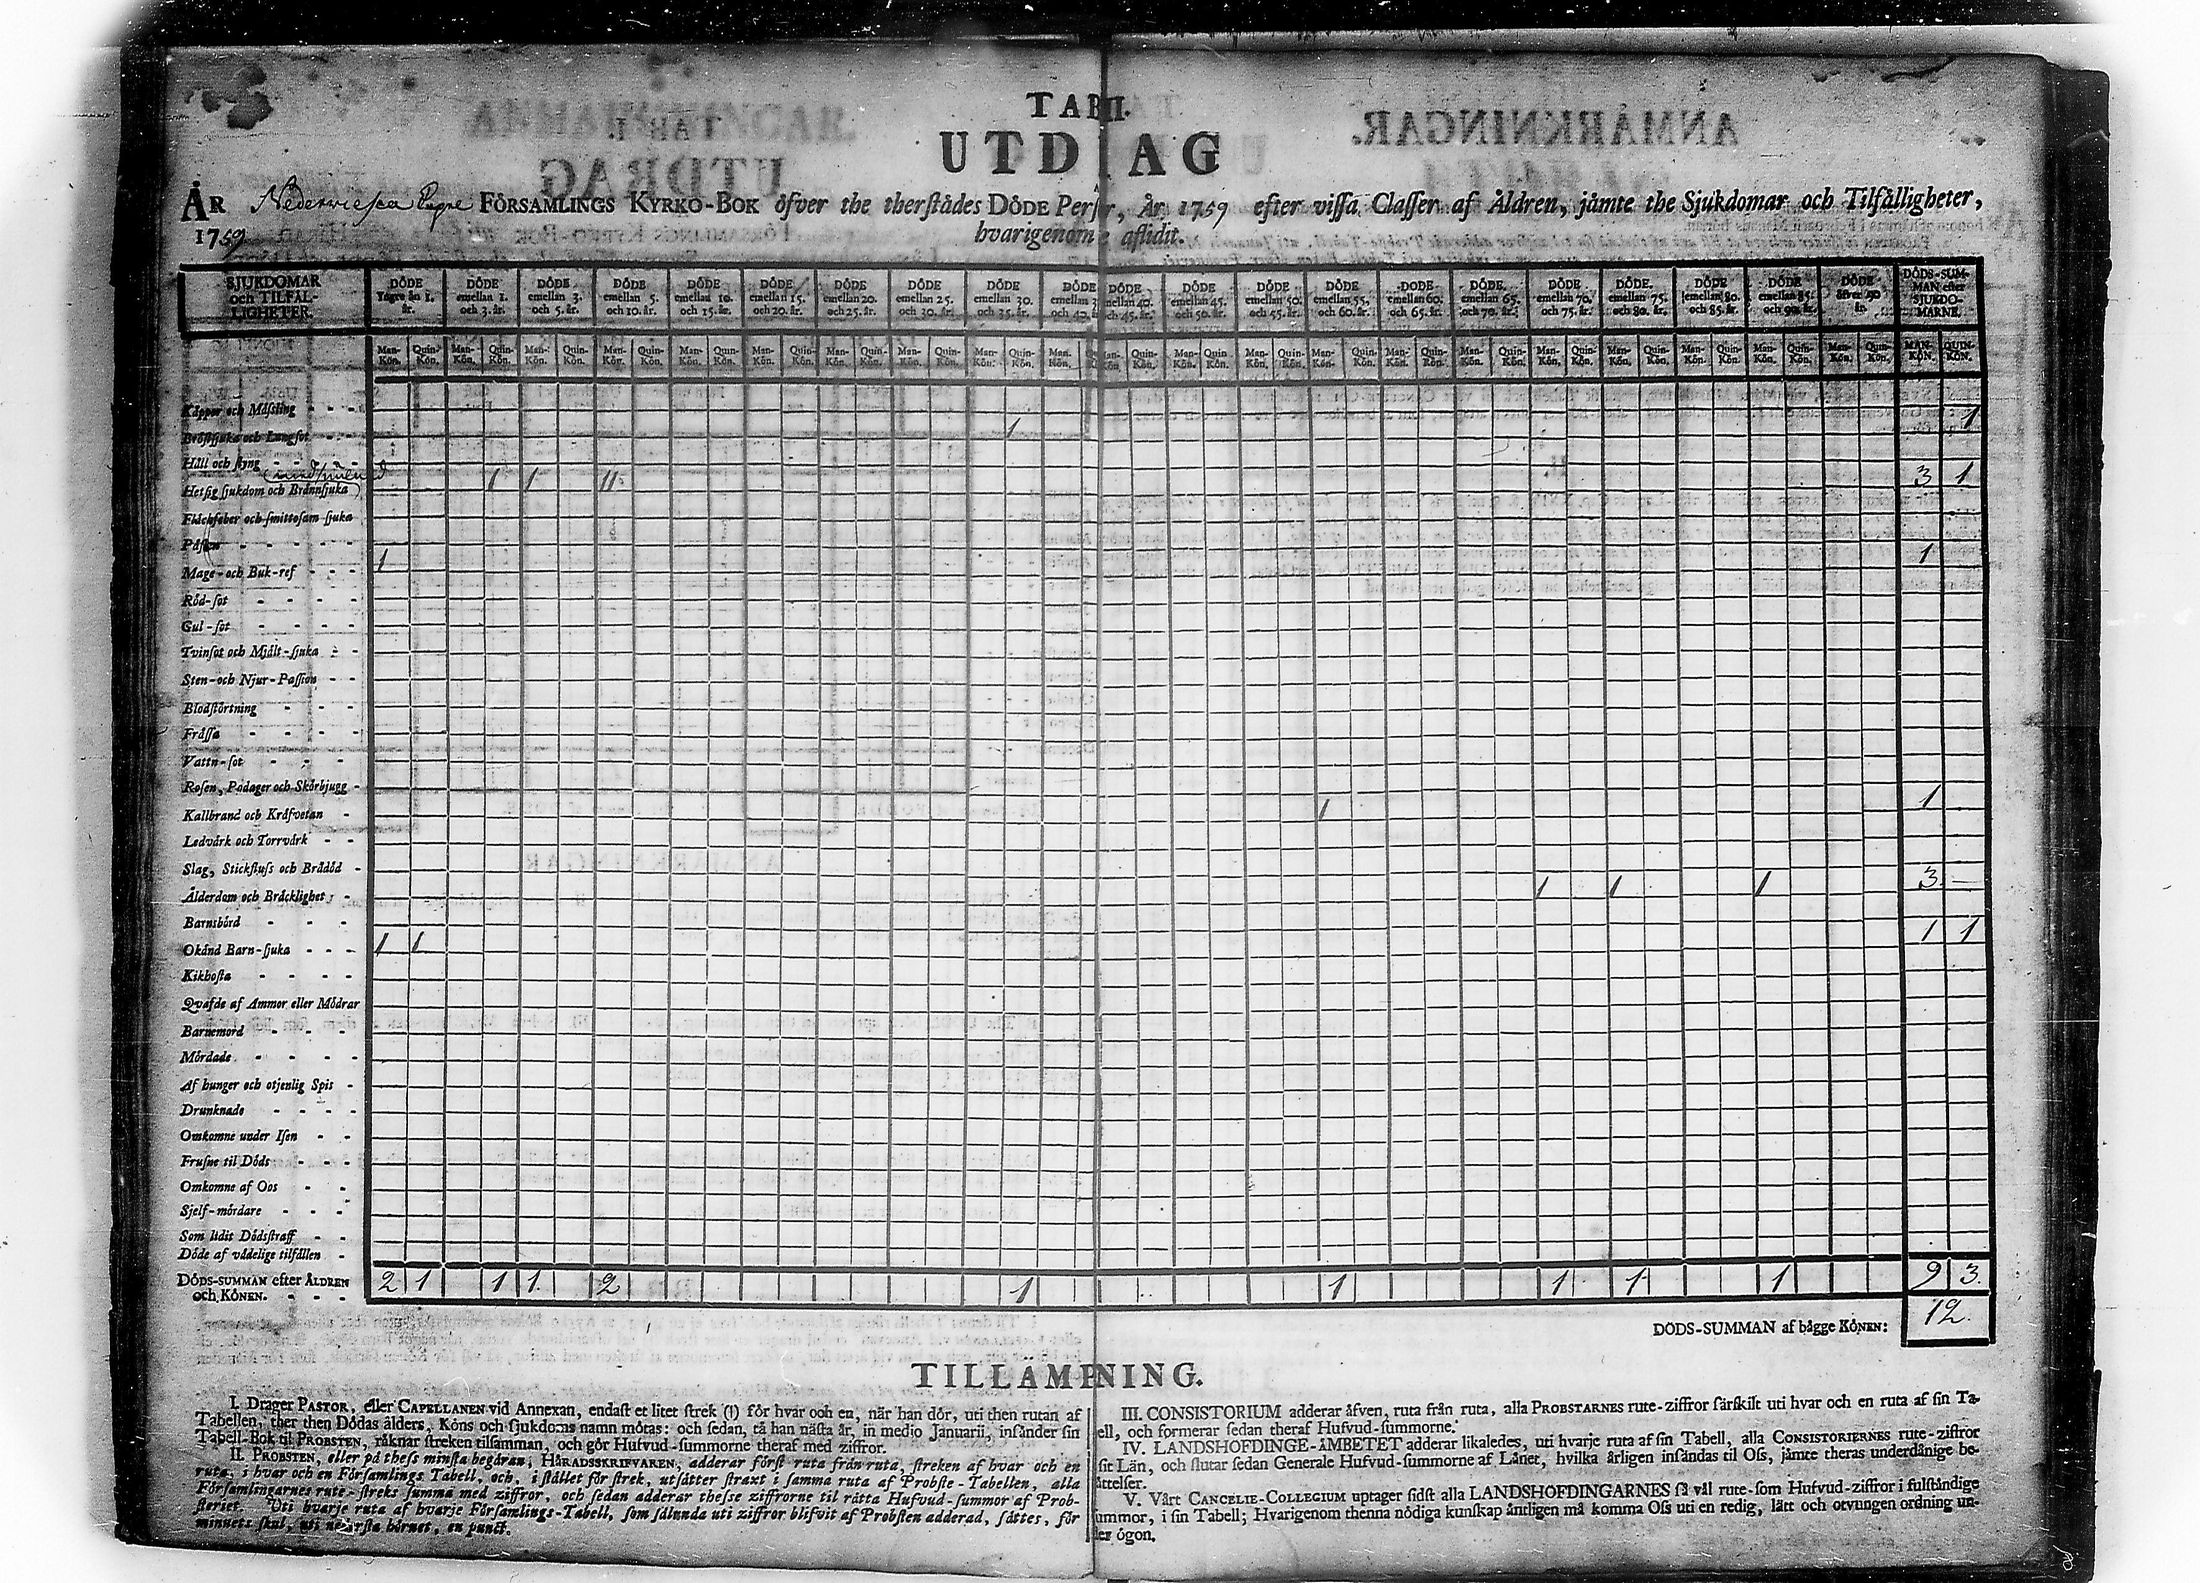 TAB II.
UTD AG
ÅR Nederwiefca FÖRSAMLINGS KYRKO-BOK öfver the therstädes DÖDE Perſ r, År 1759 efter viſſa Claſſer af Åldren, jämte the Sjukdomar och Tilfälligheter,
1759 hvarigenom aflidit.
SJUKDOMAR och TILFÄL-LIGHETER.
DÖDE Yngre än 1. år.
DÖDE emellan 1. och 3. år.
DÖDE emellan 3. och 5. år.
DÖDE emellan 5. och 10. år.
DÖDE emellan 10. och 15. år.
DÖDE emellan 15. och 20. år.
DÖDE emellan 20. och 25. år.
DÖDE emellan 25. och 30. år.
DÖDE emellan 30. och 35. år.
DÖDE emellan 3 och 40. år.
mellan 40. och 45. år.
DÖDE emellan 45. och 50. år.
DÖDE emellan 50. och 55. år.
DÖDE emellan 55. och 60. år.
DÖDE emellan 60. och 65. år.
DÖDE emellan 65. och 70. år.
DÖDE emellan 70. och 75. år.
DÖDE emellan 75. och 80. år.
DÖDE emellan 80. och 85. år.
DÖDE emellan 85. och 90. år.
DÖDE öfver 90 år.
DÖDS-SUM-MAN efter SJUKDO-MARNE.
Man-Kön. Quin-Kön. Man-Kön. Quin-Kön. Man-Kön. Quin-Kön. Man-Kön. Quin-Kön. Man-Kön. Quin-Kön. Man-Kön. Quin-Kön. Man-Kön. Quin-Kön. Man-Kön. Quin-Kön. Man-Kön. Quin-Kön. Man-Kön. Quin-Kön. Man-Kön. Quin-Kön. Man-Kön. Quin-Kön. Man-Kön. Quin-Kön. Man-Kön. Quin-Kön. Man-Kön. Quin-Kön. Man-Kön. Quin-Kön. Man-Kön. Quin-Kön. Man-Kön. Quin-Kön. Man-Kön. Quin-Kön. Man-Kön. Quin-Kön. MAN-KÖN. QUIN-KÖN.
Koppor och Mäſsling - - -
Bröſtſjuka och Lungſot - - - 1 1
Håll och ſtyng - - - -
Hetſig ſjukdom och Brännſjuka 1 1 11 3 1
Fläckfeber och ſmittoſam ſjuka
Päſten - - - - -
Mage- och Buk-ref - - - 1 1
Röd-ſot - - - -
Gul-ſot - - - -
Tvinſot och Mjält-ſjuka - -
Sten- och Njur-Paſſion - -
Blodſtörtning - - - -
Fråſſa - - - - -
Vattn-ſot - - - -
Roſen, Podager och Skörbjugg -
Kallbrand och Kräfvetan - 1 1
Ledvärk och Torrvärk - -
Slag, Stickfluſs och Brådöd -
Ålderdom och Bräcklighet - - 1 1 1 3 —
Barnsbörd - - - -
Okänd Barn-ſjuka - - - 1 1 1 1
Kikhoſta - - - -
Qväfde af Ammor eller Mödrar
Barnemord - - - -
Mördade - - - - -
Af hunger och otjenlig Spis -
Drunknade - - - -
Omkomne under Iſen - -
Fruſne til Döds - - -
Omkomne af Oos - -
Sjelf-mördare - - -
Som lidit Dödsſtraff - -
Döde af vådelige tilfällen -
DÖDS-SUMMAN efter ÅLDREN 2 1 1 1. 2 1 1 1 1 1 9 3
och KÖNEN. - - -
DÖDS-SUMMAN af bägge KÖNEN: 12.
TILLÄMPNING.
I. Drager PASTOR, eller CAPELLANEN vid Annexan, endaſt et litet ſtrek (ı) för hvar och en, när han dör, uti then rutan af
Tabellen, ther then Dödas ålders, Köns och ſjukdoms namn mötas: och ſedan, tå han näſta år, in medio Januarii, inſänder ſin
Tabell-Bok til PROBSTEN, räknar ſtreken tillſamman, och gör Hufvud-ſummorne theraf med ziffror.
II. PROBSTEN, eller på theſs minſta begäran, HÄRADSSKRIFVAREN, adderar förſt ruta från ruta, ſtreken af hvar och en
ruta, i hvar och en Förſamlings Tabell, och, i ſtället för ſtrek, utſätter ſtraxt i ſamma ruta af Probſte-Tabellen, alla
Förſamlingarnes rute-ſtreks ſumma med ziffror, och ſedan adderar theſse ziffrorne til rätta Hufvud-ſummor af Prob-
ſteriet. Uti hvarje ruta af hvarje Förſamlings-Tabell, ſom ſålunda uti ziffror blifvit af Probſten adderad, ſättes, för
minnets ſkul, uti nederſta hörnet, en punct.
III. CONSISTORIUM adderar äfven, ruta från ruta, alla PROBSTARNES rute-ziffror ſärſkilt uti hvar och en ruta af ſin Ta-
ell, och formerar ſedan theraf Hufvud-ſummorne.
IV. LANDSHÖFDINGE-ÄMBETET adderar likaledes, uti hvarje ruta af ſin Tabell, alla CONSISTORIERNES rute-ziffror
ſit Län, och ſlutar ſedan Generale Hufvud-ſummorne af Länet, hvilka årligen inſändas til Oſs, jämte theras underdånige be-
ättelſer.
V. Vårt CANCELIE-COLLEGIUM uptager ſidſt alla LANDSHÖFDINGARNES ſå väl rute-ſom Hufvud-ziffror i fulſtändige
ummor, i ſin Tabell; Hvarigenom thenna nödiga kunſkap äntligen må komma Oſs uti en redig, lätt och otvungen ordning un-
der ögon.